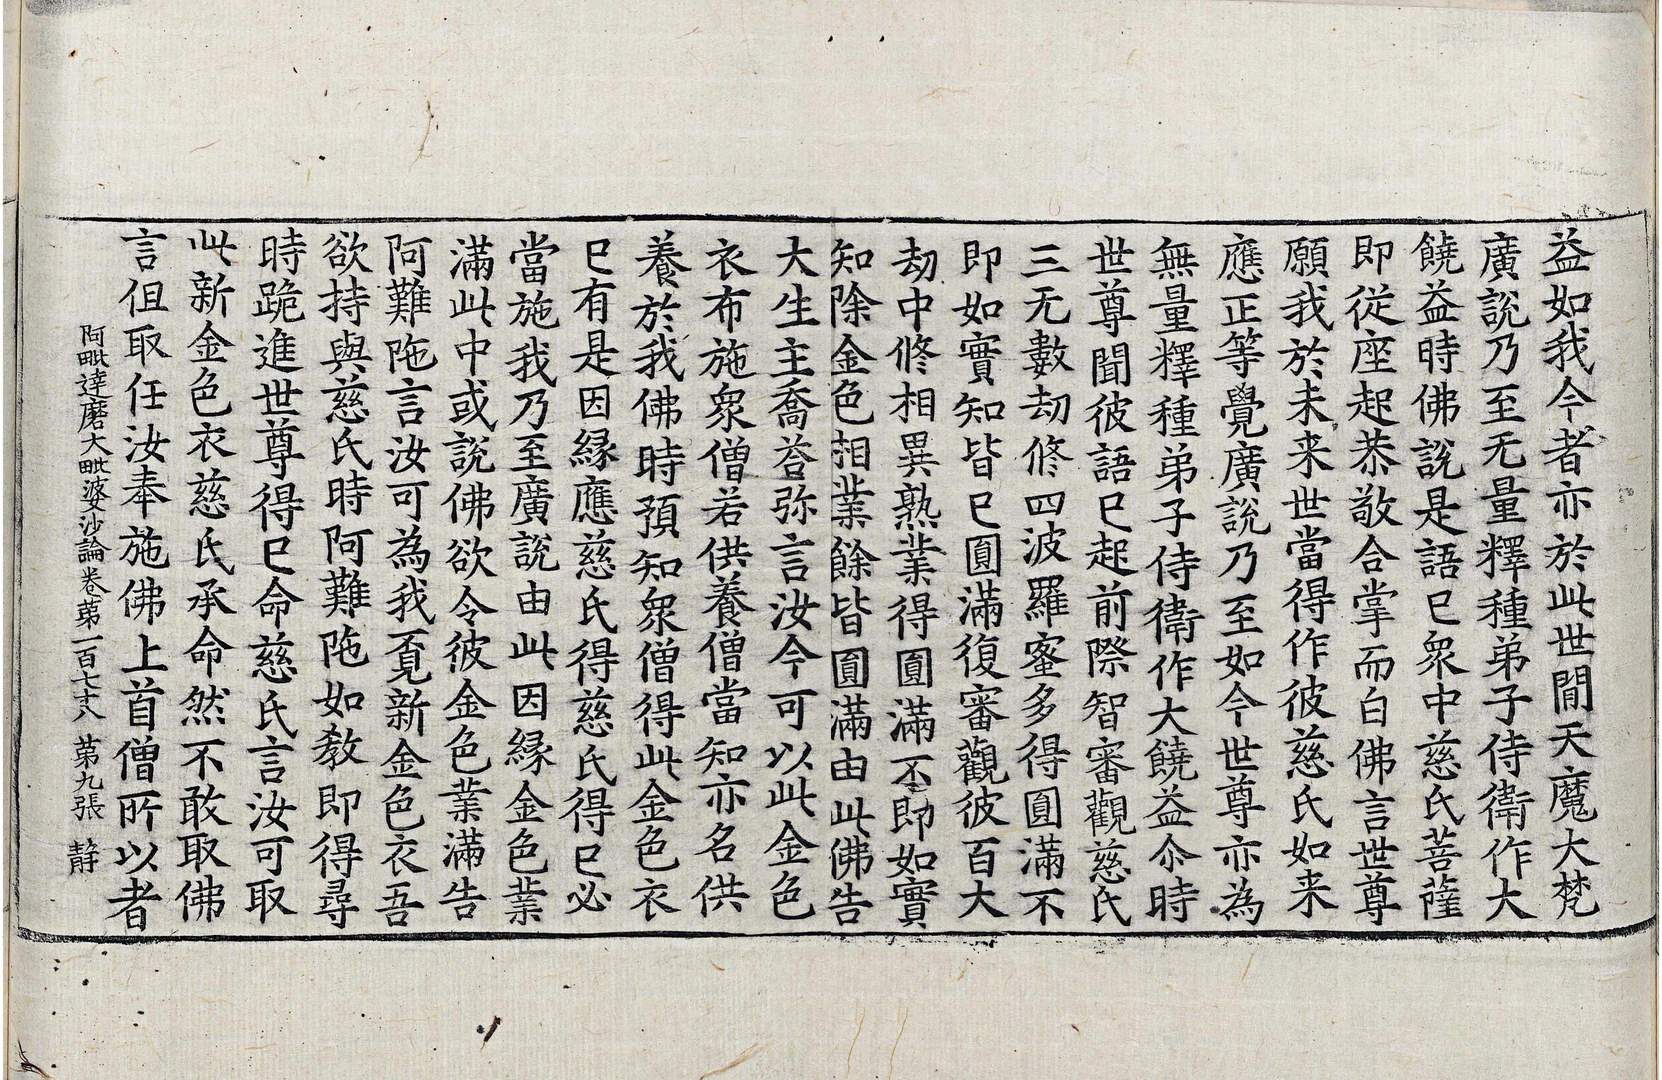 益如我今者亦於此世間天魔大梵
廣說乃至无量釋種弟子侍衛作大
饒益時佛說是語已衆中慈氏菩薩
即從座起恭敬合掌而白佛言世尊
願我於未来世當得作彼慈氏如来
應正等覺廣說乃至如今世尊亦為
無量釋種弟子侍衛作大饒益尒時
世尊聞彼語已起前際智審觀慈氏
三无數劫修四波羅蜜多得圓滿不
即如實知皆已圓滿復審觀彼百大
劫中修相異熟業得圓滿不即如實
知除金色相業餘皆圓滿由此佛告
大生主喬荅弥言汝今可以此金色
衣布施衆僧若供養僧當知亦名供
養於我佛時預知衆僧得此金色衣
已有是因緣應慈氏得慈氏得已必
當施我乃至廣說由此因緣金色業
滿此中或說佛欲令彼金色業滿告
阿難陁言汝可為我覔新金色衣吾
欲持與慈氏時阿難陁如教即得尋
時跪進世尊得已命慈氏言汝可取
此新金色衣慈氏承命然不敢取佛
言但取任汝奉施佛上首僧所以者
阿毗達磨大毗婆沙論卷第一百七十八 第九張 靜